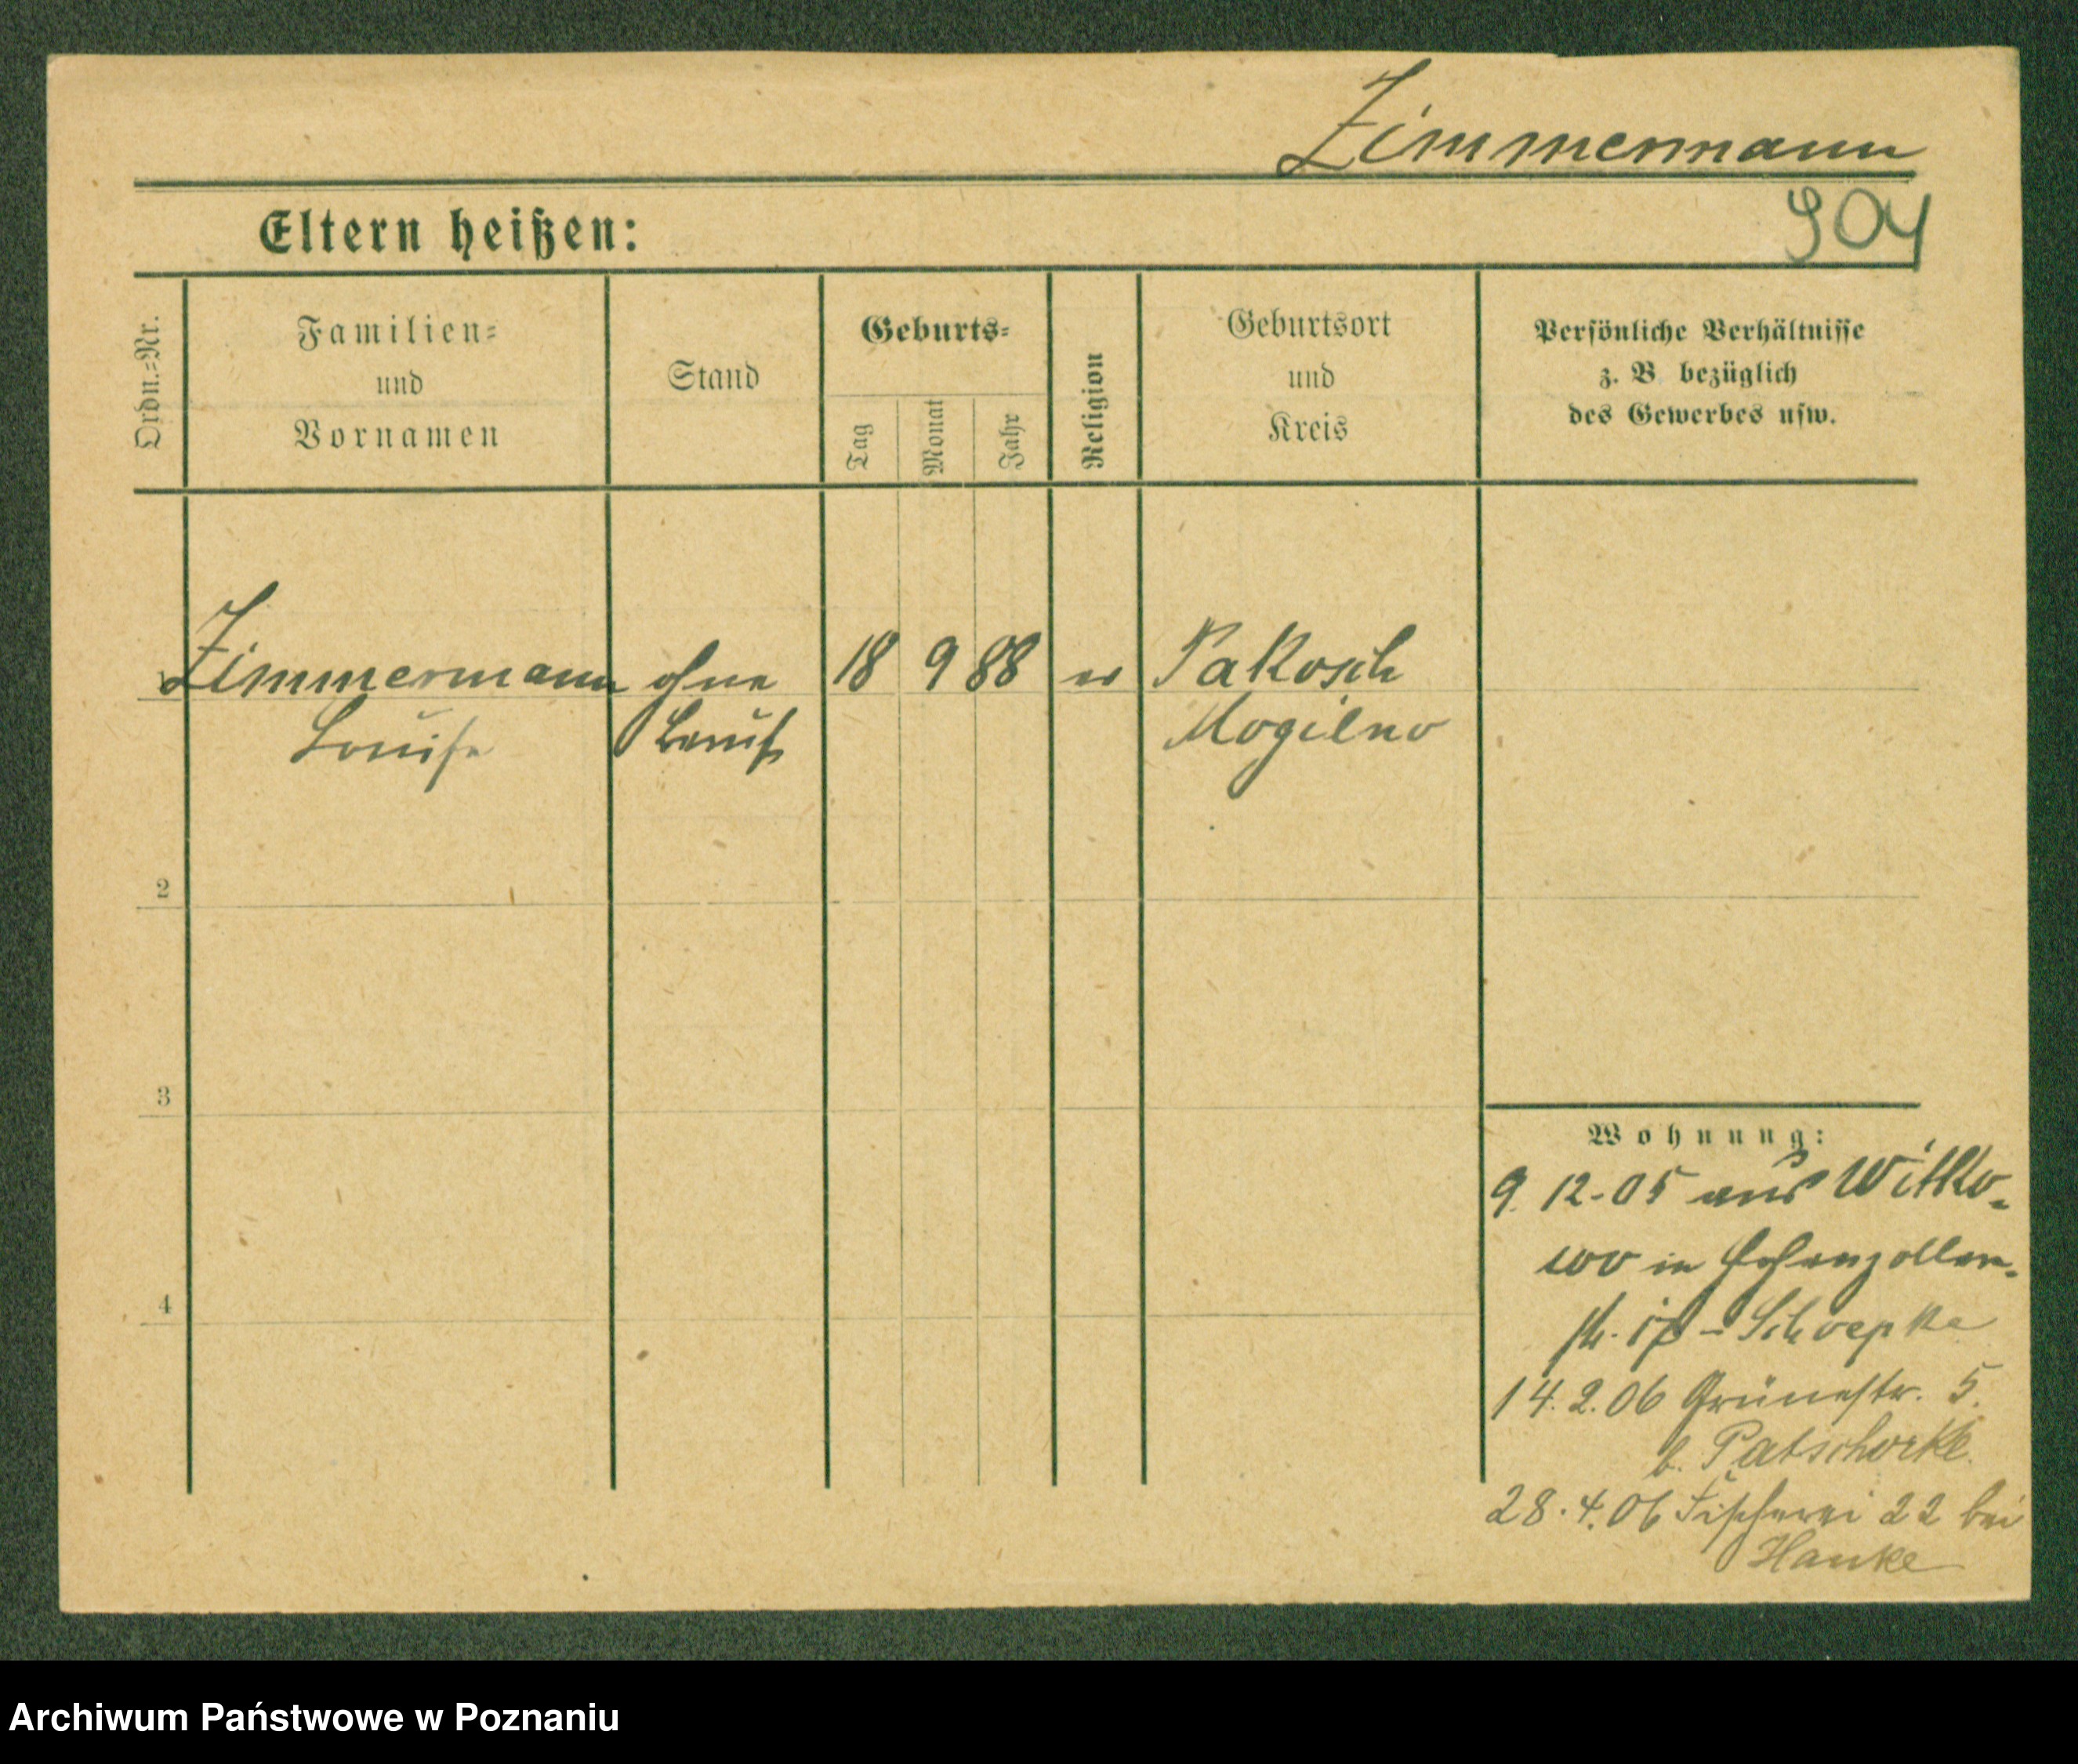 Zimmermann
Eltern heißen:
904
Ordn.-Nr.
Familien-
und
Vornamen
Stand
Geburts-
Tag
Monat
Jahr
Religion
Geburtsort
und
Kreis
Persönliche Verhältnisse
z. B bezüglich
des Gewerbes usw.
Zimmermann ohne 18 9 88 ev Pakosch
Louise Beruf Mogilno
2
3
4
Wohnung:
9. 12-05 aus Witko-
wo in Hohenzollern-
str. - Schoepke
14.2.06 Grünestr. 5.
b. Patschorke.
28.4.06 Fischerei 22 bei
Hanke
Archiwum Państwowe w Poznaniu